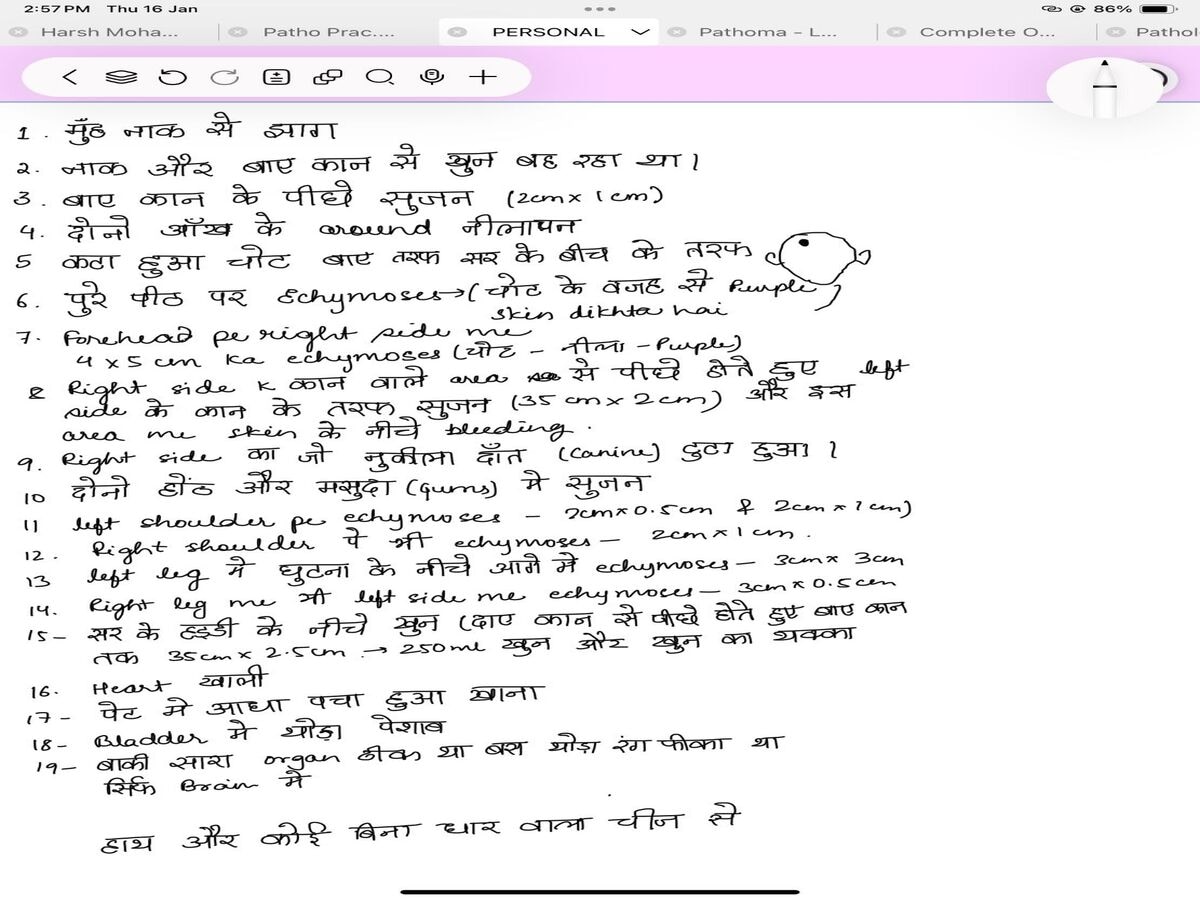 2:57 PM Thu 16 Jan
86%
Harsh Moha...
Patho Prac....
PERSONAL
Pathoma - L...
Complete O...
Pathol
1. मुँह नाक से झाग
2. नाक और बाए कान से खुन बह रहा था।
3. बाए कान के पीछे सुजन (2cm x 1cm)
4. दोनो आँख के around नीलापन
5 कटा हुआ चोट बाए तरफ सर के बीच के तरफ
6. पुरे पीठ पर Echymoses→(चोट के वजह से Purple
skin dikhta hai
7. Forehead pe right side me
4 x 5 cm ka echymoses (चोट - नीला - Purple)
Right side k कान वाले area से पीछे होते हुए left
side के कान के तरफ सुजन (35 cm x 2 cm) और इस
area me skin के नीचे bleeding.
9. Right side का जो नुकीला दाँत (Canine) टुटा हुआ।
10 दोनो होंठ और मसुदा (Gums) मे सुजन
11 left shoulder pe echymoses - 2cm x 0.5cm & 2cm x 1cm)
12. Right shoulder पे भी echymoses - 2cm x 1cm.
13 left leg मे घुटना के नीचे आगे मे echymoses - 3cm x 3cm
14. Right leg me भी left side me echymoses - 3cm x 0.5cm
15- सर के हड्डी के नीचे खुन (दाए कान से पीछे होते हुए बाए कान
तक 35cm x 2.5cm → 250ml खुन और खुन का थक्का
16. Heart खाली
17- पेट मे आधा पचा हुआ खाना
18- Bladder मे थोड़ा पेशाब
19- बाकी सारा organ ठीक था बस थोड़ा रंग फीका था
सिर्फ Brain मे
हाथ और कोई बिना धार वाला चीज से